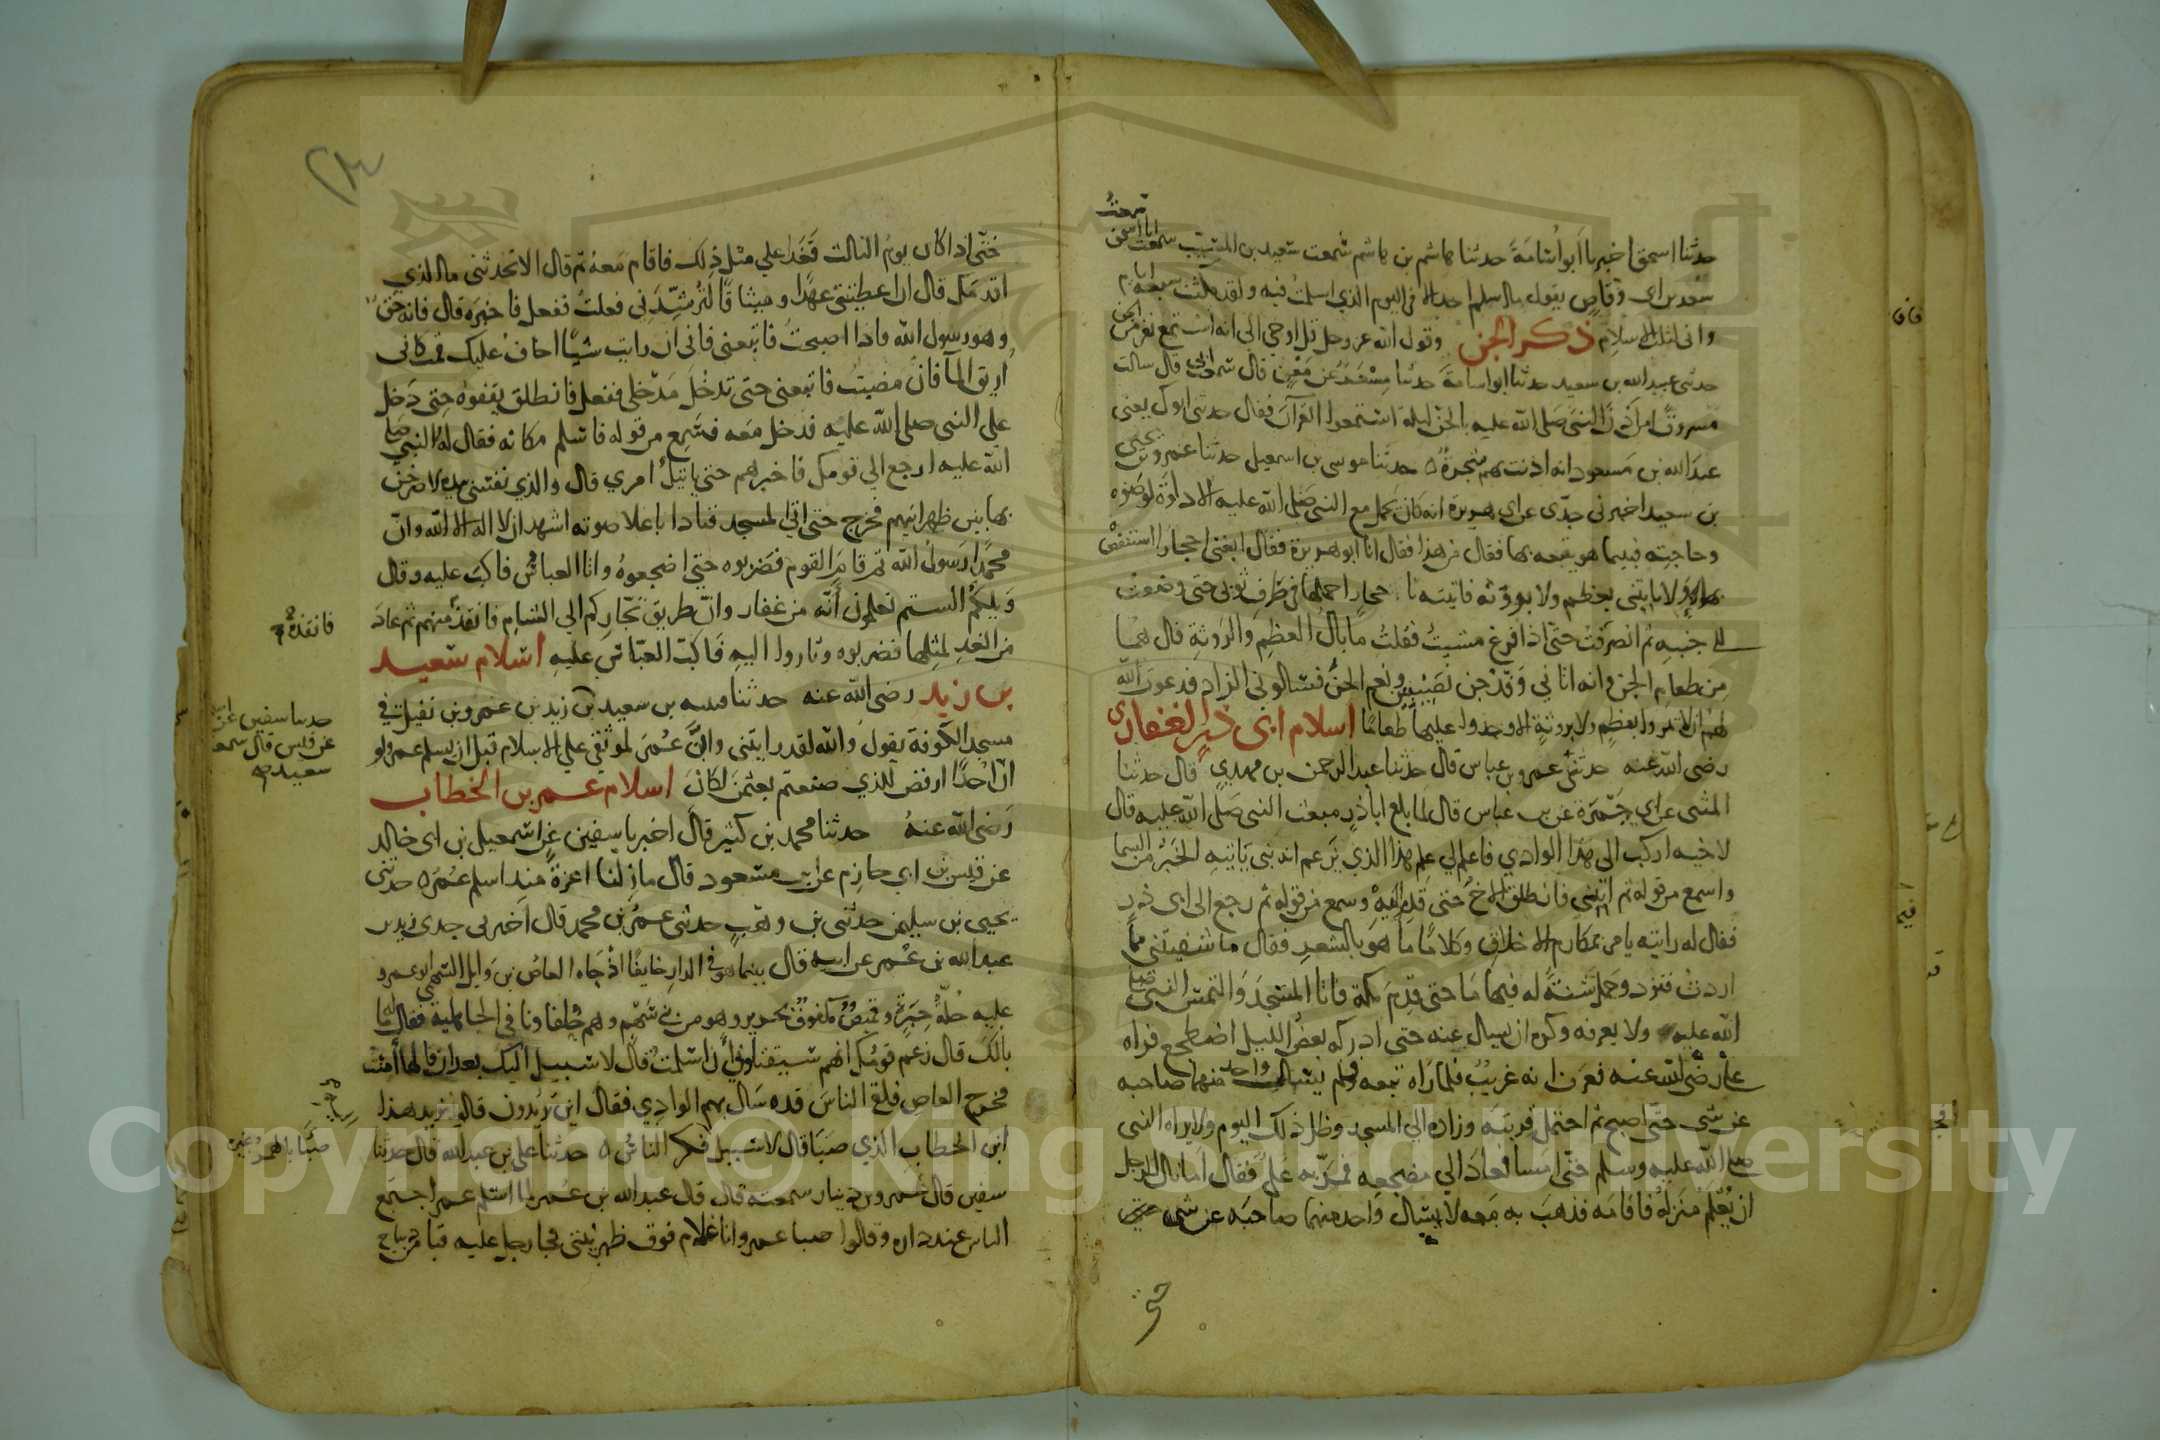 حدثنا اسحق اخبرنا ابو اسامة حدثنا هاشم بن هاشم سمعت سعيد بن المسيب سمعت ابا اسحق
سعد بن ابى وقاص يقول ما اسلم احد الا فى اليوم الذي اسلمت فيه ولقد مكثت سبعة ايام
وانى لثلث الاسلام ذكر الجن وقول الله عز وجل قل اوحي الي انه استمع نفر من الجن
حدثنى عبيد الله بن سعيد حدثنا ابو اسامة حدثنا مسعر عن معن قال سمعت ابى قال سالت
مسروقا من آذن النبى صلى الله عليه بالجن ليلة استمعوا القرآن فقال حدثنى ابوك يعنى
عبد الله بن مسعود انه اذنت بهم شجرة ه حدثنا موسى بن اسمعيل حدثنا عمرو بن يحيى
بن سعيد اخبرنى جدى عن ابى هريرة انه كان يحمل مع النبى صلى الله عليه الاداوة لوضوه
وحاجته فبينما هو يتبعه بها فقال من هذا فقال انا ابو هريرة فقال ابغنى احجارا استنفض
بها ولا تاتنى بعظم ولا بروثة فاتيته باحجار احملها فى طرف ثوبى حتى وضعت
الى جنبه ثم انصرفت حتى اذا فرغ مشيت فقلت ما بال العظم والروثة قال هما
من طعام الجن وانه اتانى وفد جن نصيبين ونعم الجن فسالونى الزاد فدعوت الله
لهم ان لا تمروا بعظم ولا بروثة الا وجدوا عليها طعاما اسلام ابى ذر الغفارى
رضى الله عنه حدثنى عمرو بن عباس قال حدثنا عبد الرحمن بن مهدي قال حدثنا
المثنى عن ابى جمرة عن ابن عباس قال لما بلغ اباذر مبعث النبى صلى الله عليه قال
لاخيه اركب الى هذا الوادي فاعلم لى علم هذا الذي يزعم انه نبى ياتيه الخبر من السما
واسمع من قوله ثم ايتنى فانطلق الاخ حتى قدمه وسمع من قوله ثم رجع الى ابى ذر
فقال له رايته يامر بمكارم الاخلاق وكلاما ما هو بالشعر فقال ما شفيتنى مما
اردت فتزود وحمل شنة له فيها ما حتى قدم مكة فاتا المسجد والتمس النبى صلى
الله عليه ولا يعرفه وكره ان يسال عنه حتى ادركه بعض الليل اضطجع فراه
على رضى الله عنه فعرف انه غريب فلما راه تبعه فلم يسال واحد منهما صاحبه
عن شى حتى اصبح ثم احتمل قربته وزاده الى المسجد وظل ذلك اليوم ولا يراه النبى
صلى الله عليه وسلم حتى امسا فعاد الى مضجعه فمر به على فقال اما نال للرجل
ان يعلم منزله فاقامه فذهب به معه لا يسال واحد منهما صاحبه عن شى
حتى
حتى اذا كان يوم الثالث قعد على مثل ذلك فاقام معه ثم قال الا تحدثنى ما الذي
اقدمك قال ان اعطيتنى عهدا وميثاقا لترشدنى فعلت ففعل فاخبره قال فانه حق
وهو رسول الله فاذا اصبحت فاتبعنى فانى ان رايت شيا اخاف عليك قمت كانى
اريق الما فان مضيت فاتبعنى حتى تدخل مدخلى ففعل فانطلق يقفوه حتى دخل
على النبى صلى الله عليه فدخل معه فسمع من قوله فاسلم مكانه فقال له النبى صلى
الله عليه ارجع الى قومك فاخبرهم حتى ياتيك امري قال والذي نفسى بيده لاصرخن
بها بين ظهرانيهم فخرج حتى اتى المسجد فنادا باعلا صوته اشهد ان لا اله الا الله وان
محمدا رسول الله ثم قام القوم فضربوه حتى اضجعوه واتا العباس فاكب عليه وقال
ويلكم الستم تعلمون انه من غفار وان طريق تجاركم الى الشام فانقذه منهم ثم عاد
من الغد لمثلها فضربوه وثاروا اليه فاكب العباس عليه اسلام سعيد
بن زيد رضى الله عنه حدثنا قتيبه بن سعيد بن زيد بن عمرو بن نفيل فى
مسجد الكوفة يقول والله لقد رايتنى وان عمر لموثقى على الاسلام قبل ان يسلم عمر ولو
ان احدا ارفض للذي صنعتم بعثمن لكان اسلام عمر بن الخطاب
رضى الله عنه حدثنا محمد بن كثير قال اخبرنا سفين عن اسمعيل بن ابى خالد
عن قيس بن ابى حازم عن ابن مسعود قال ما زلنا اعزة منذ اسلم عمر ه حدثنى
يحيى بن سليمن حدثنى بن وهب حدثنى عمر بن محمد قال اخبرنى جدى زيد بن
عبد الله بن عمر عن ابيه قال بينما هو فى الدار خايفا اذ جاه العاص بن وايل السهمى ابو عمرو
عليه حلة حبرة وقميص مكفوف بحرير وهو من بنى سهم وهم حلفاونا فى الجاهلية فقال له ما
بالك قال زعم قومك انهم سيقتلونى ان اسلمت قال لا سبيل اليك بعد ان قالها امنت
فخرج العاص فلقى الناس قد سال بهم الوادي فقال اين تريدون قالوا نريد هذا
ابن الخطاب الذي صبا قال لا سبيل فكر الناس ه حدثنا على بن عبد الله قال حدثنا
سفين قال عمرو بن دينار سمعته قال قال عبد الله بن عمر لما اسلم عمر اجتمع
الناس عند داره وقالوا صبا عمر وانا غلام فوق ظهر بيتى فجا رجل عليه قبا من ديباج
فانقذه
حدثنا سفين عن
عن قيس قال سمعت
سعيد
Copyright © King Saud University